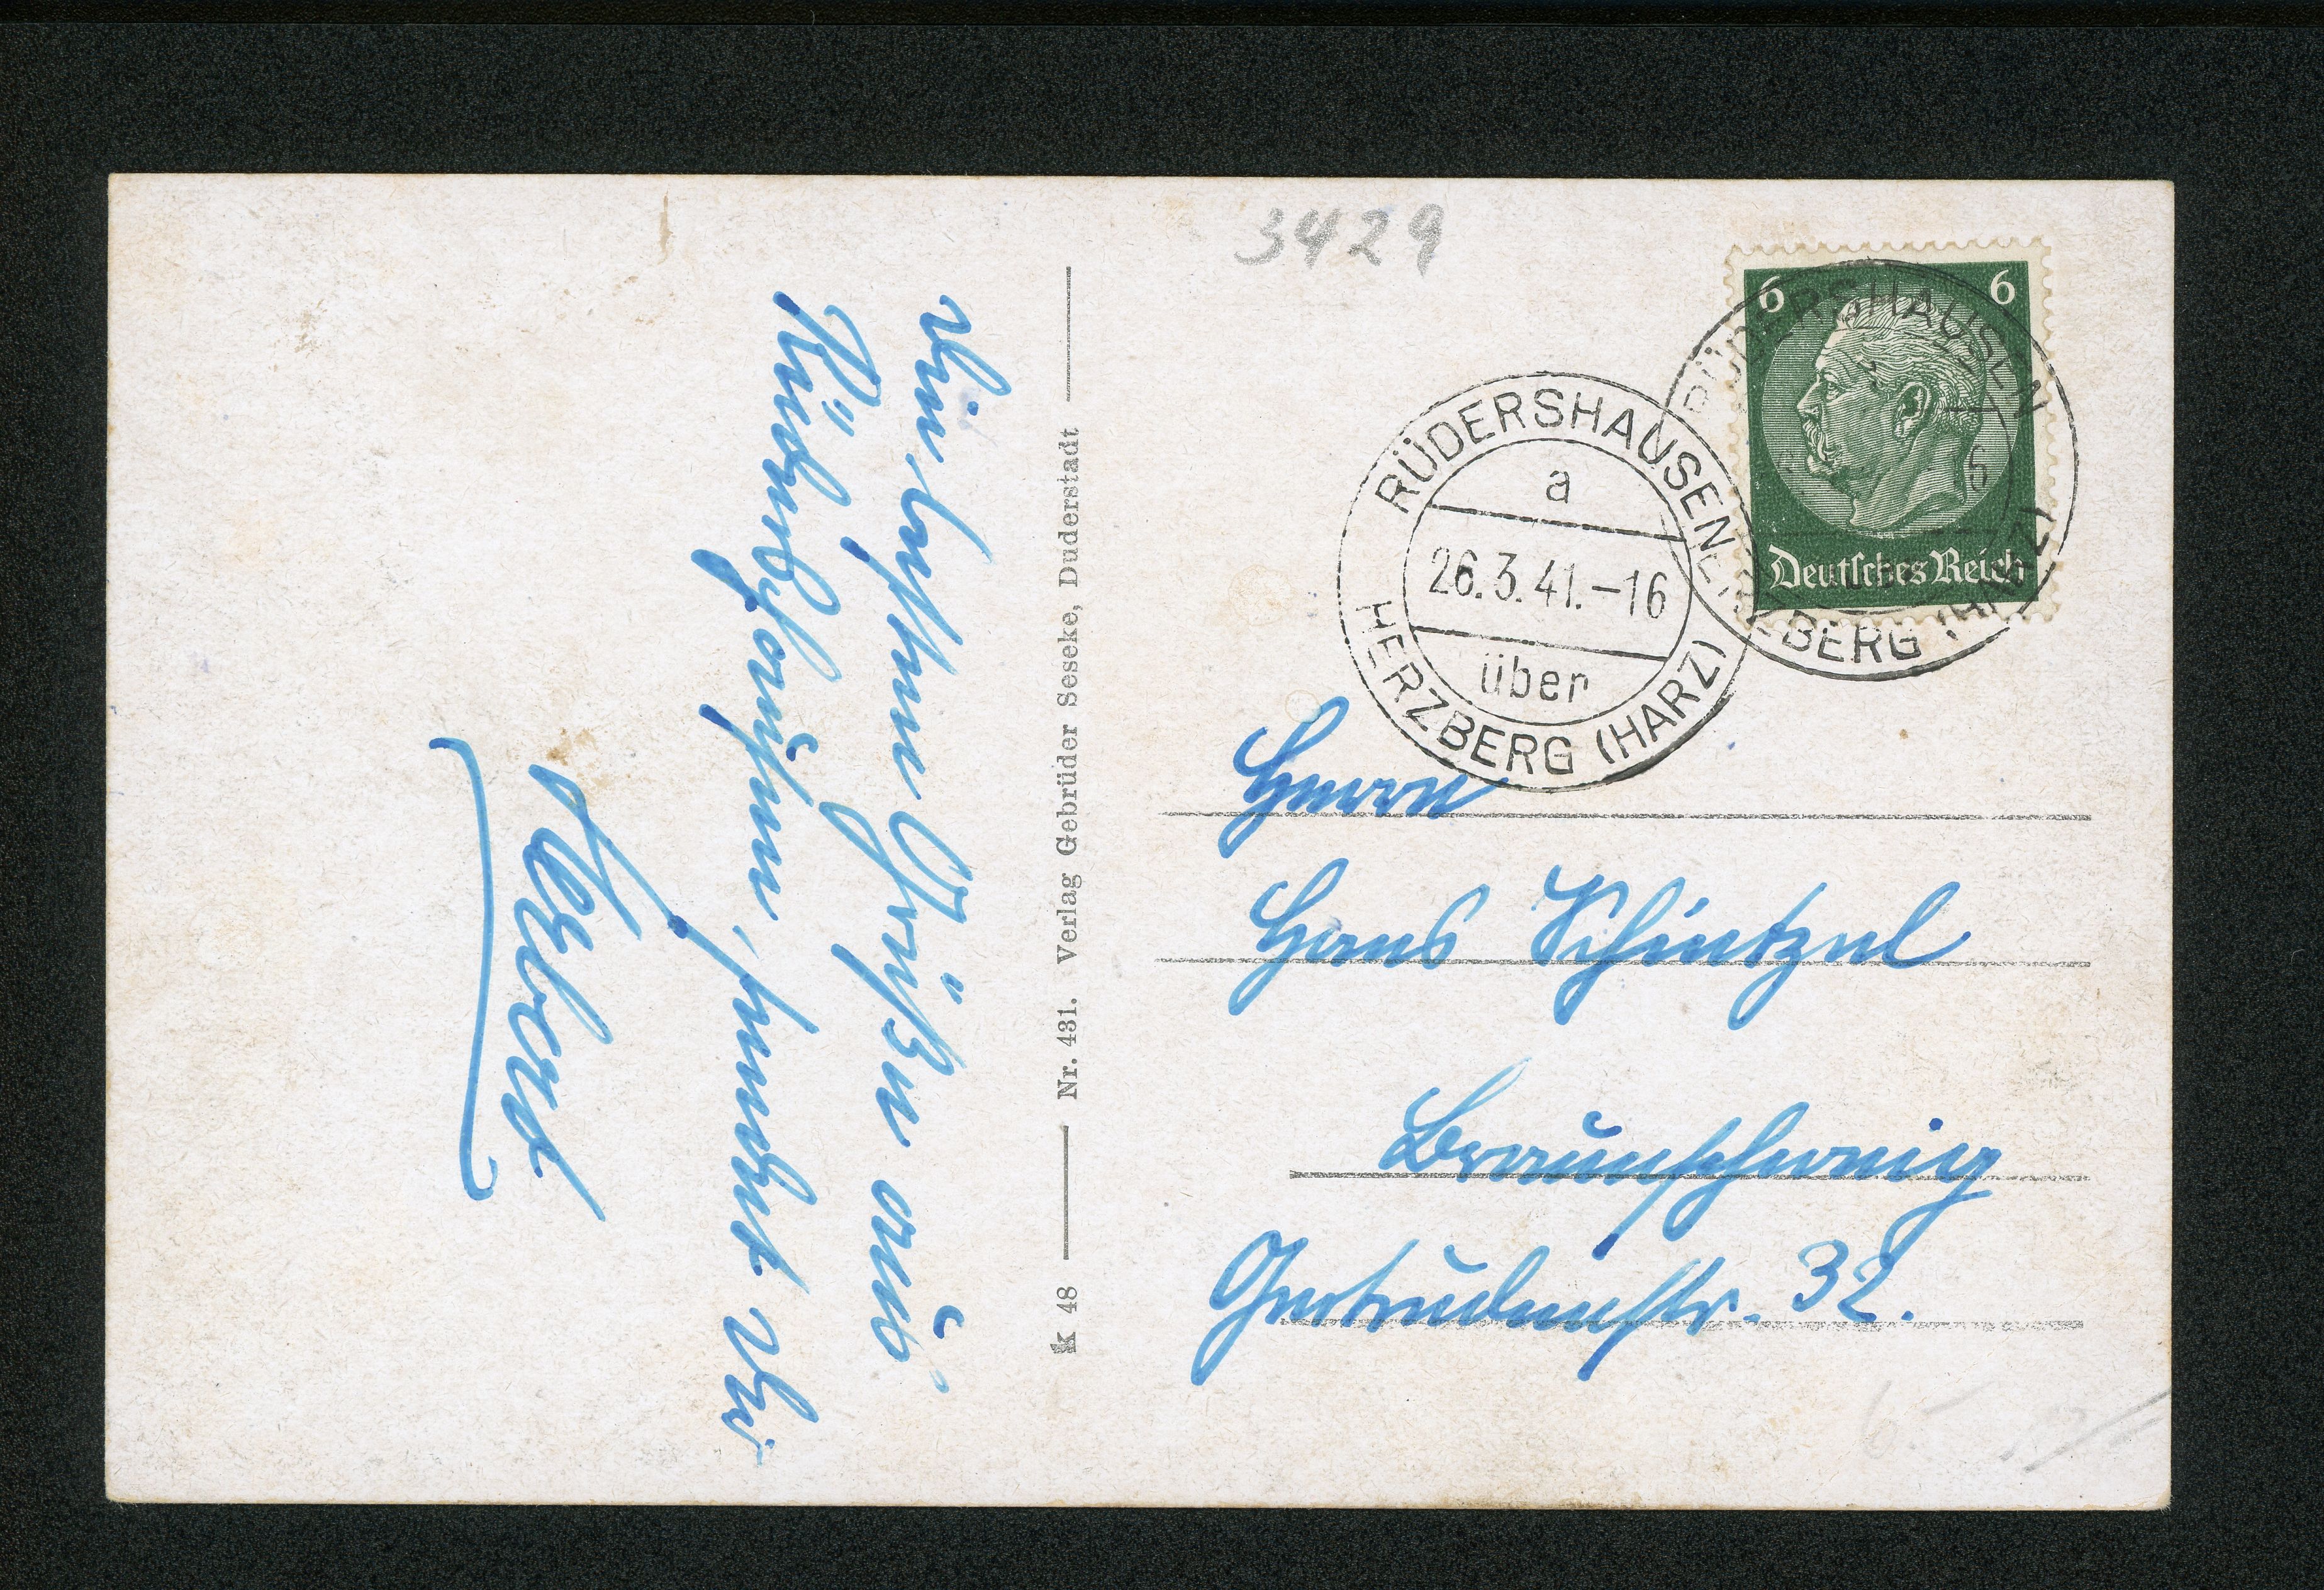 Die besten Grüße aus
Rüdershausen, sendet Dir
Herbert
K 48 Nr. 431. Verlag Gebrüder Seseke, Duderstadt
3429
6 6
Deutsches Reich
RÜDERSHAUSEN
a
26.3.41.-16
über
HERZBERG (HARZ)
RÜDERSHAUSEN
HERZBERG (HARZ)
Herrn
Hans Schintzel
Braunschweig
Gertrudenstr. 32.